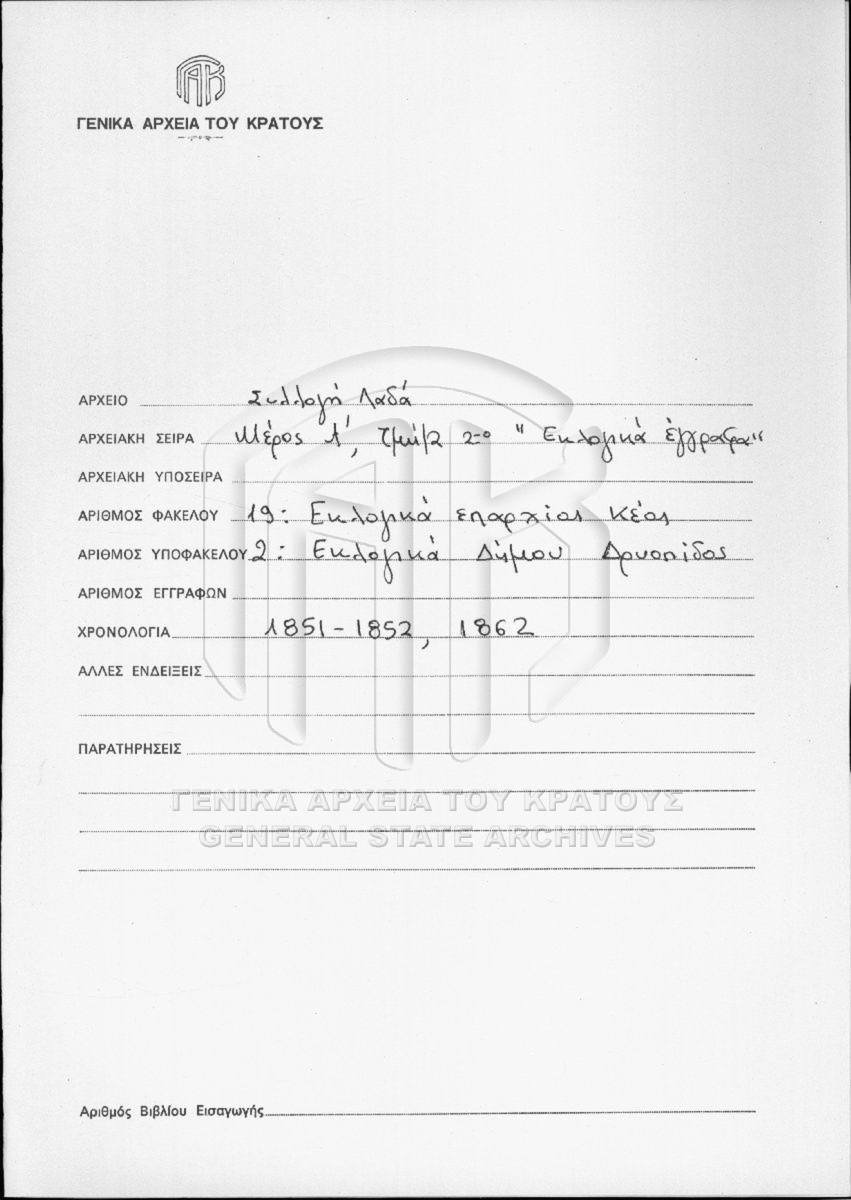 ΓΑΚ
ΓΕΝΙΚΑ ΑΡΧΕΙΑ ΤΟΥ ΚΡΑΤΟΥΣ
ΑΡΧΕΙΟ Συλλογή Λαδά
ΑΡΧΕΙΑΚΗ ΣΕΙΡΑ Μέρος Α', τμήμα 2ο "Εκλογικά έγγραφα"
ΑΡΧΕΙΑΚΗ ΥΠΟΣΕΙΡΑ
ΑΡΙΘΜΟΣ ΦΑΚΕΛΟΥ 19: Εκλογικά επαρχίας Κέας
ΑΡΙΘΜΟΣ ΥΠΟΦΑΚΕΛΟΥ 2: Εκλογικά Δήμου Δρυοπίδος
ΑΡΙΘΜΟΣ ΕΓΓΡΑΦΩΝ
ΧΡΟΝΟΛΟΓΙΑ 1851-1852, 1862
ΑΛΛΕΣ ΕΝΔΕΙΞΕΙΣ
ΠΑΡΑΤΗΡΗΣΕΙΣ
ΓΕΝΙΚΑ ΑΡΧΕΙΑ ΤΟΥ ΚΡΑΤΟΥΣ
GENERAL STATE ARCHIVES
Αριθμός Βιβλίου Εισαγωγής